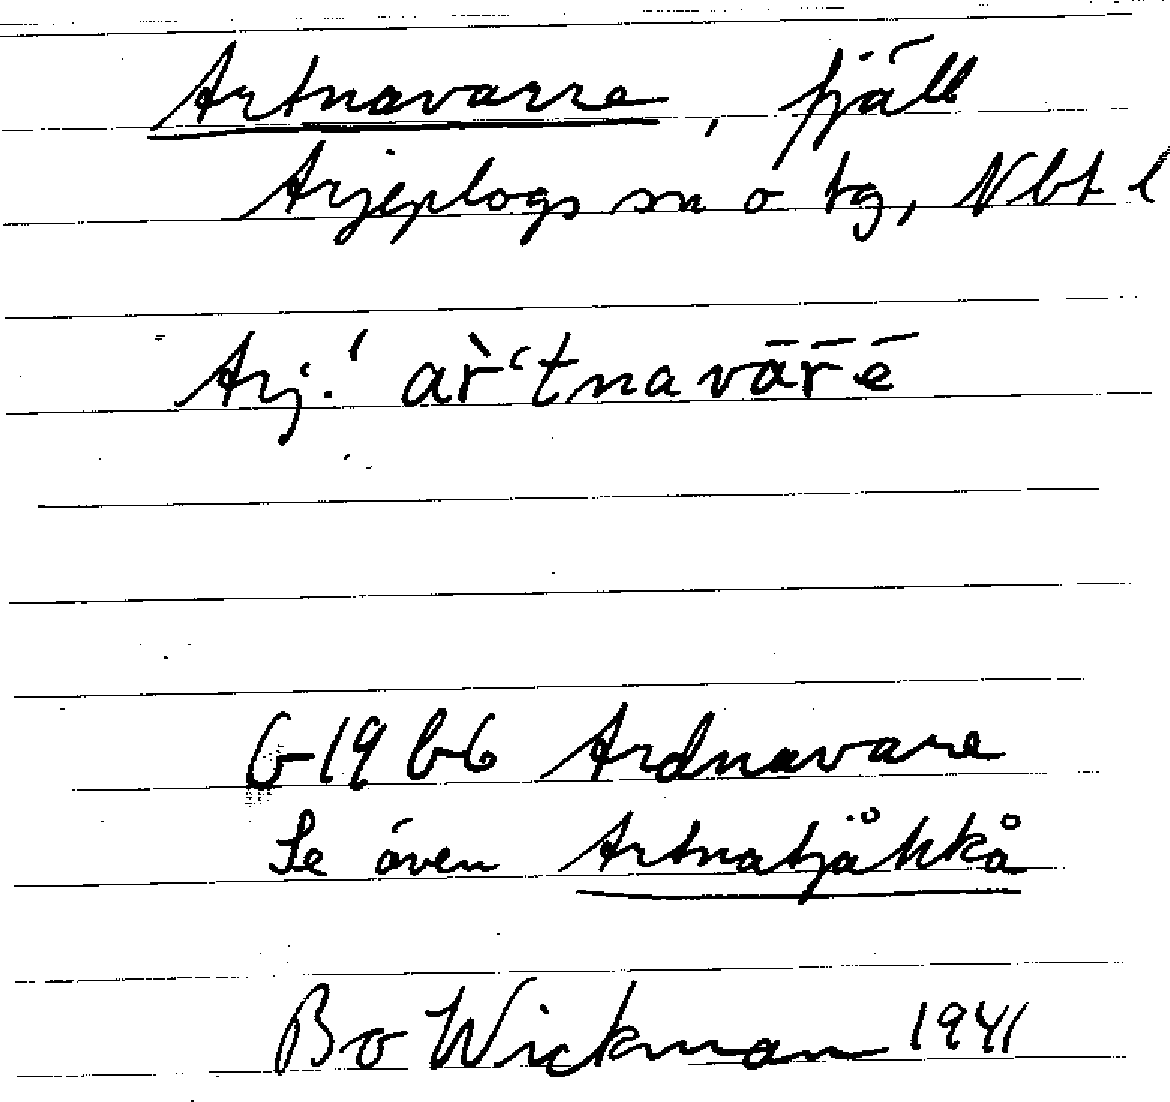 Artnavarre, fjäll
Arjeplogs sn o tg, Nbt l
Arj.: ar̀ʿtnavār̄ē
G-19 b6 Ardnavare
Se även Artnatjåkkå
Bo Wickman 1941